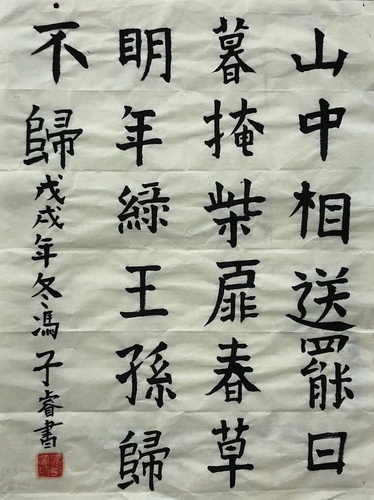 山中相送罷日
暮掩柴扉春草
明年綠王孫歸
不歸
戊戌年冬馮子睿書